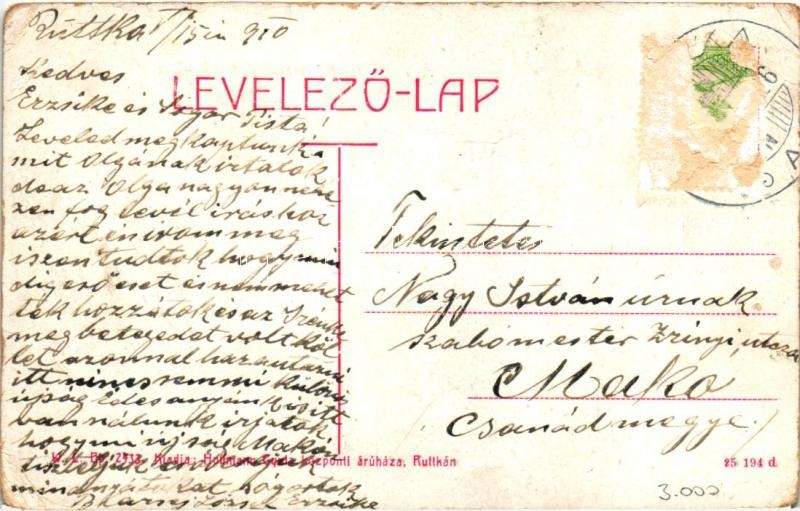 Ruttka 915
LEVELEZŐ-LAP
Kedves
Erzsike és Sógor Pista!
Leveled megkaptunk
mit Olgának irtatok
de az Olga nagyon nehe
zen fog levél iráshoz
azért én irom meg
iszen tudtok hogy min
dig erő eset és nem mehet
tek hozzátok és az
megbetegedet volt köl
let azonnal haza utazni
itt nincs semmi különs
ujság Édes anyánk is itt
van nálunk irjatok
hogy mi ujság Makó
minanyátokat csógostok
Erzsike
Tekintetes
Nagy István úrnak
szabómester Zrinyi, utcza
Mako
Csanád megye
W. L. Bp. 2433. Kiadja: Hoffmann Gyula központi áruháza, Ruttkán
25 194 d.
3.000